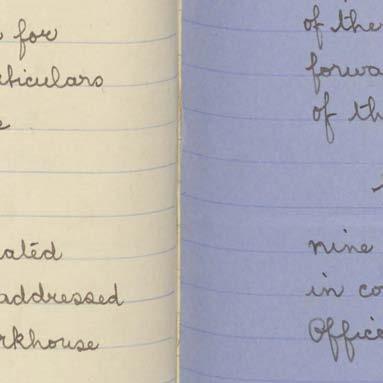 for
ticulars
ated
addressed
rkhouse
of the
forwa
of th
nine
in co
Office